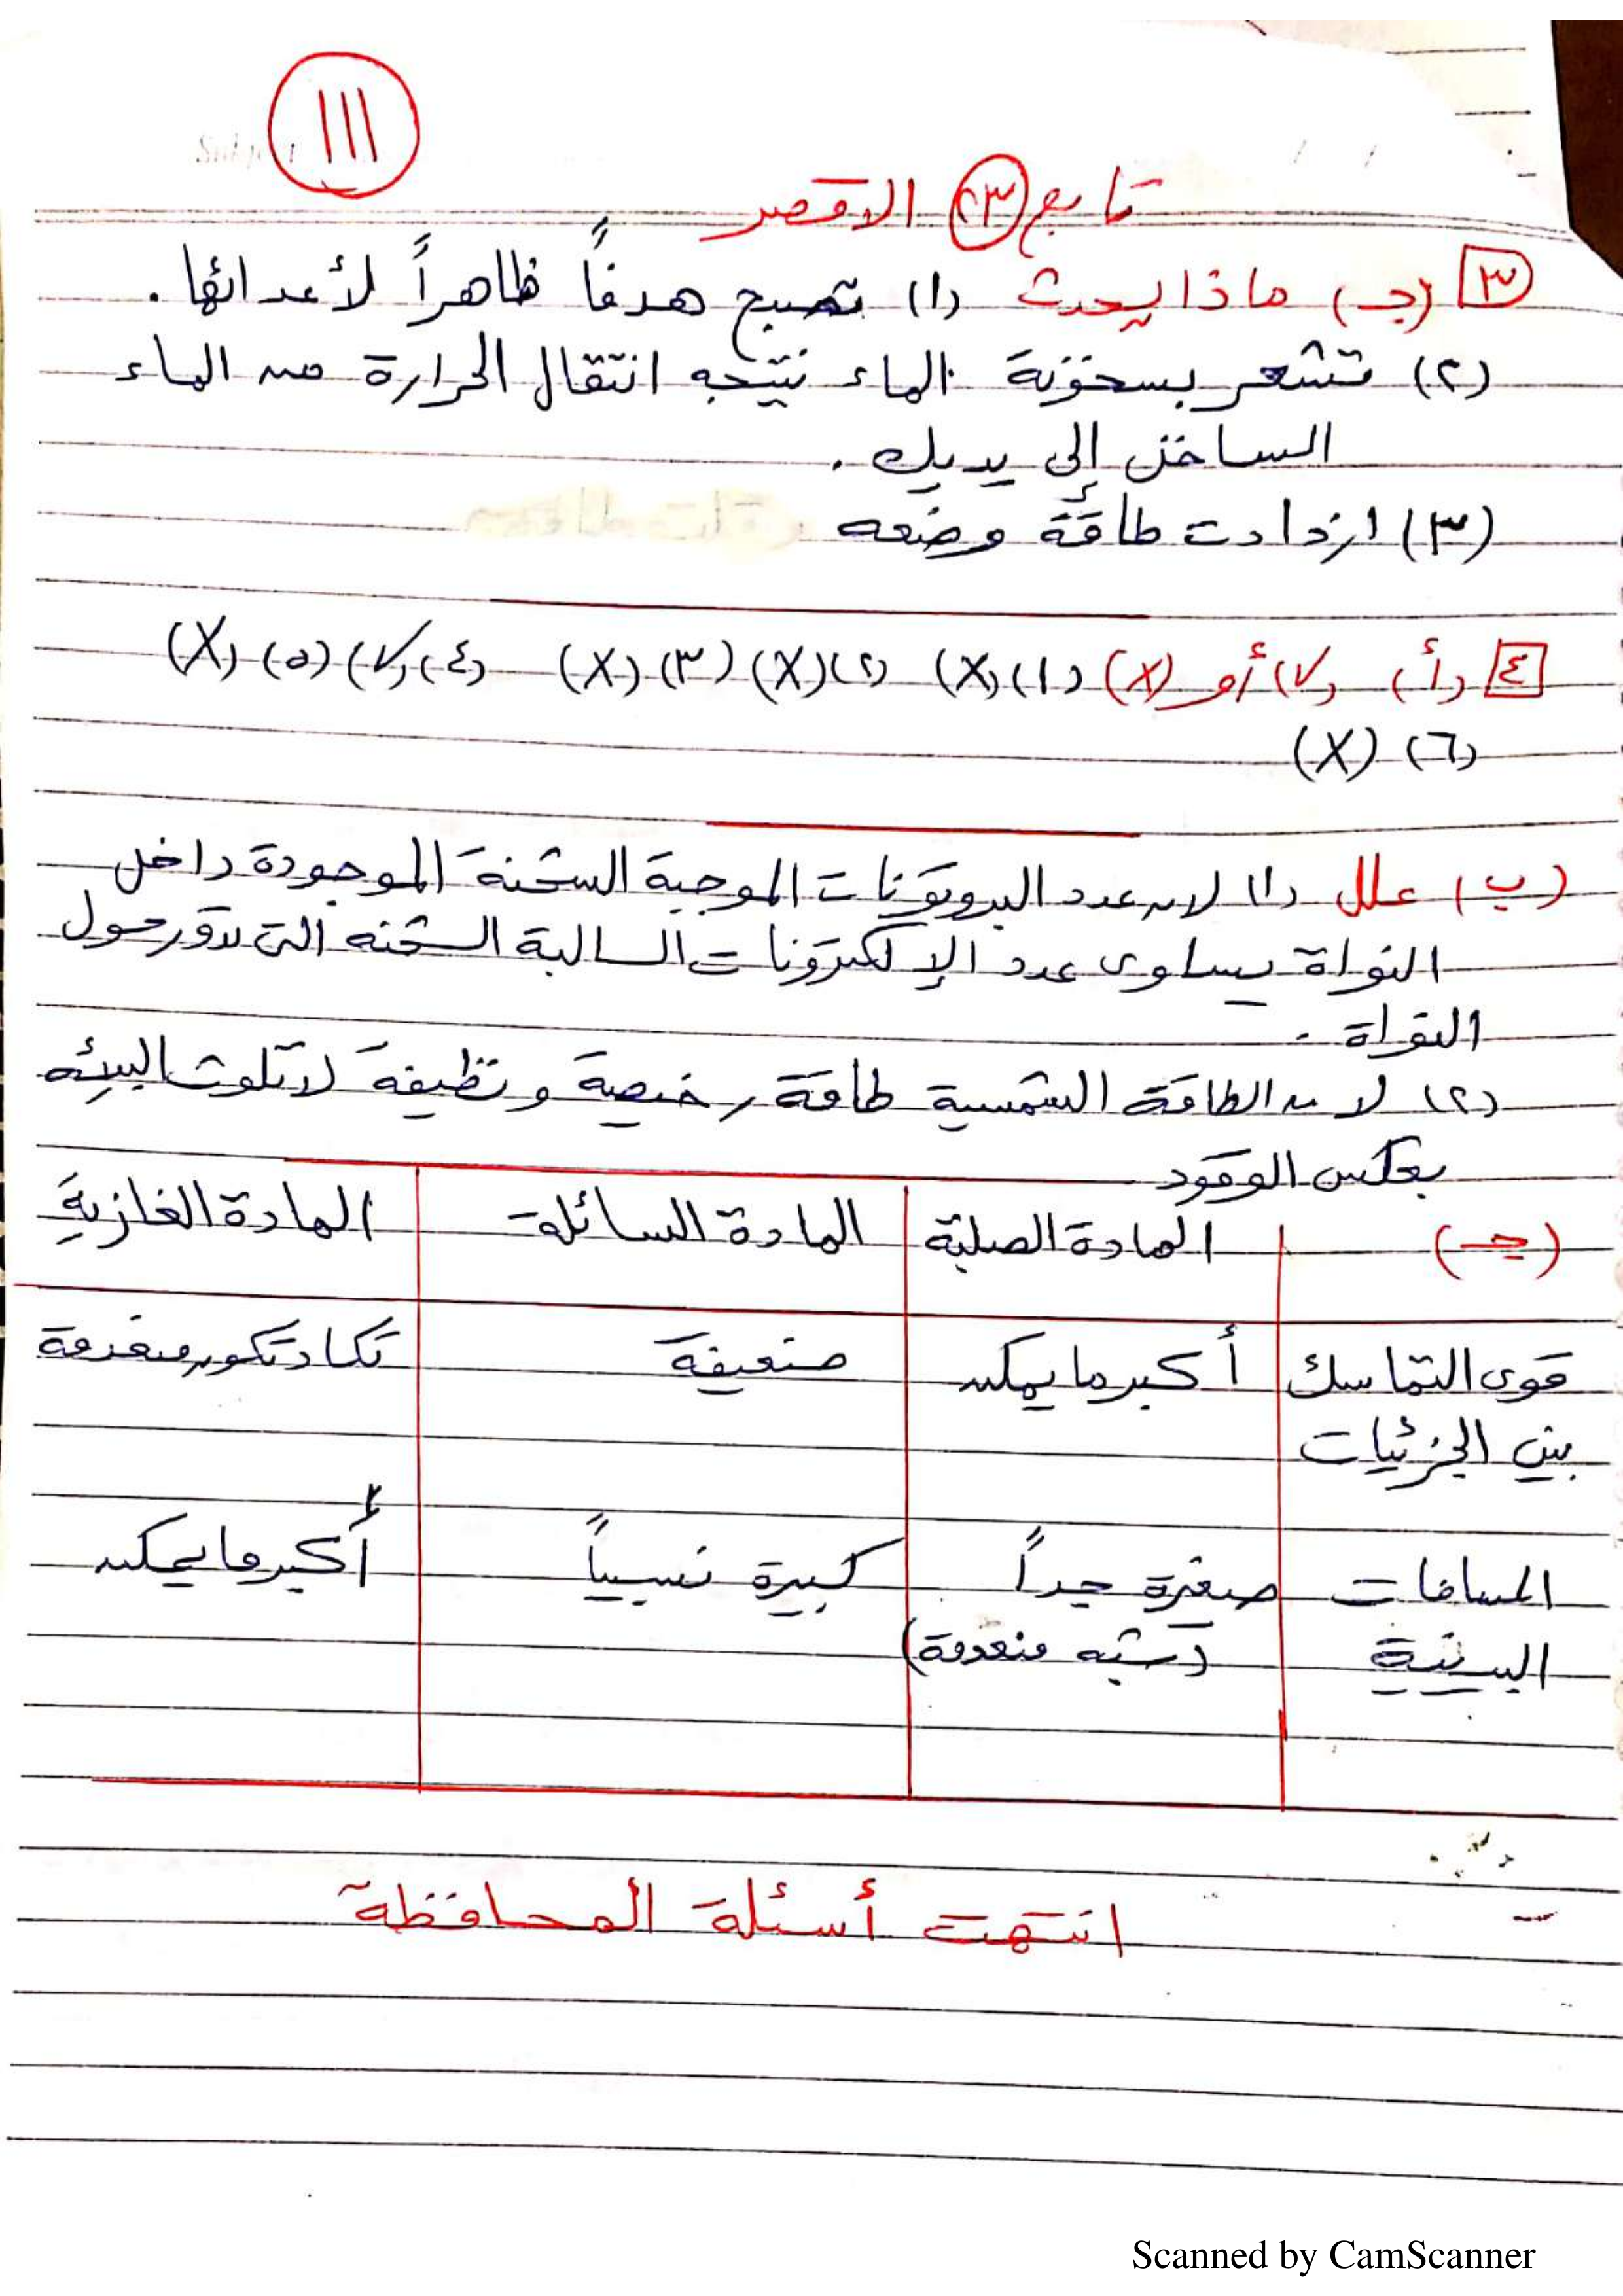 ١١١
تابع (٢٣) الاقصر
٣ (جـ) ماذا يحدث (١) تصبح هدفاً ظاهراً لأعدائها .
(٢) تشعر بسخونة الماء نتيجه انتقال الحرارة من الماء
الساخن إلى يديك .
(٣) ازدادت طاقة وضعه
٤ (أ) (✓) أو (X) (١) (X) (٢) (X) (٣) (X) (٤) (✓) (٥) (X)
(٦) (X)
(ب) علل (١) لان عدد البروتونات الموجبة الشحنة الموجودة داخل
النواة يساوى عدد الإلكترونات السالبة الشحنه التى تدور حول
النواة .
(٢) لان الطاقة الشمسية طاقة رخيصة ونظيفة لا تلوث البيئه
بعكس الوقود
(جـ) المادة الصلبة المادة السائلة المادة الغازية
قوى التماسك أكبر ما يمكن ضعيفة تكاد تكون منعدمة
بين الجزئيات
المسافات صغيرة جداً كبيرة نسبياً أكبر ما يمكن
البينية (شبه منعدمة)
انتهت أسئلة المحافظة
Scanned by CamScanner